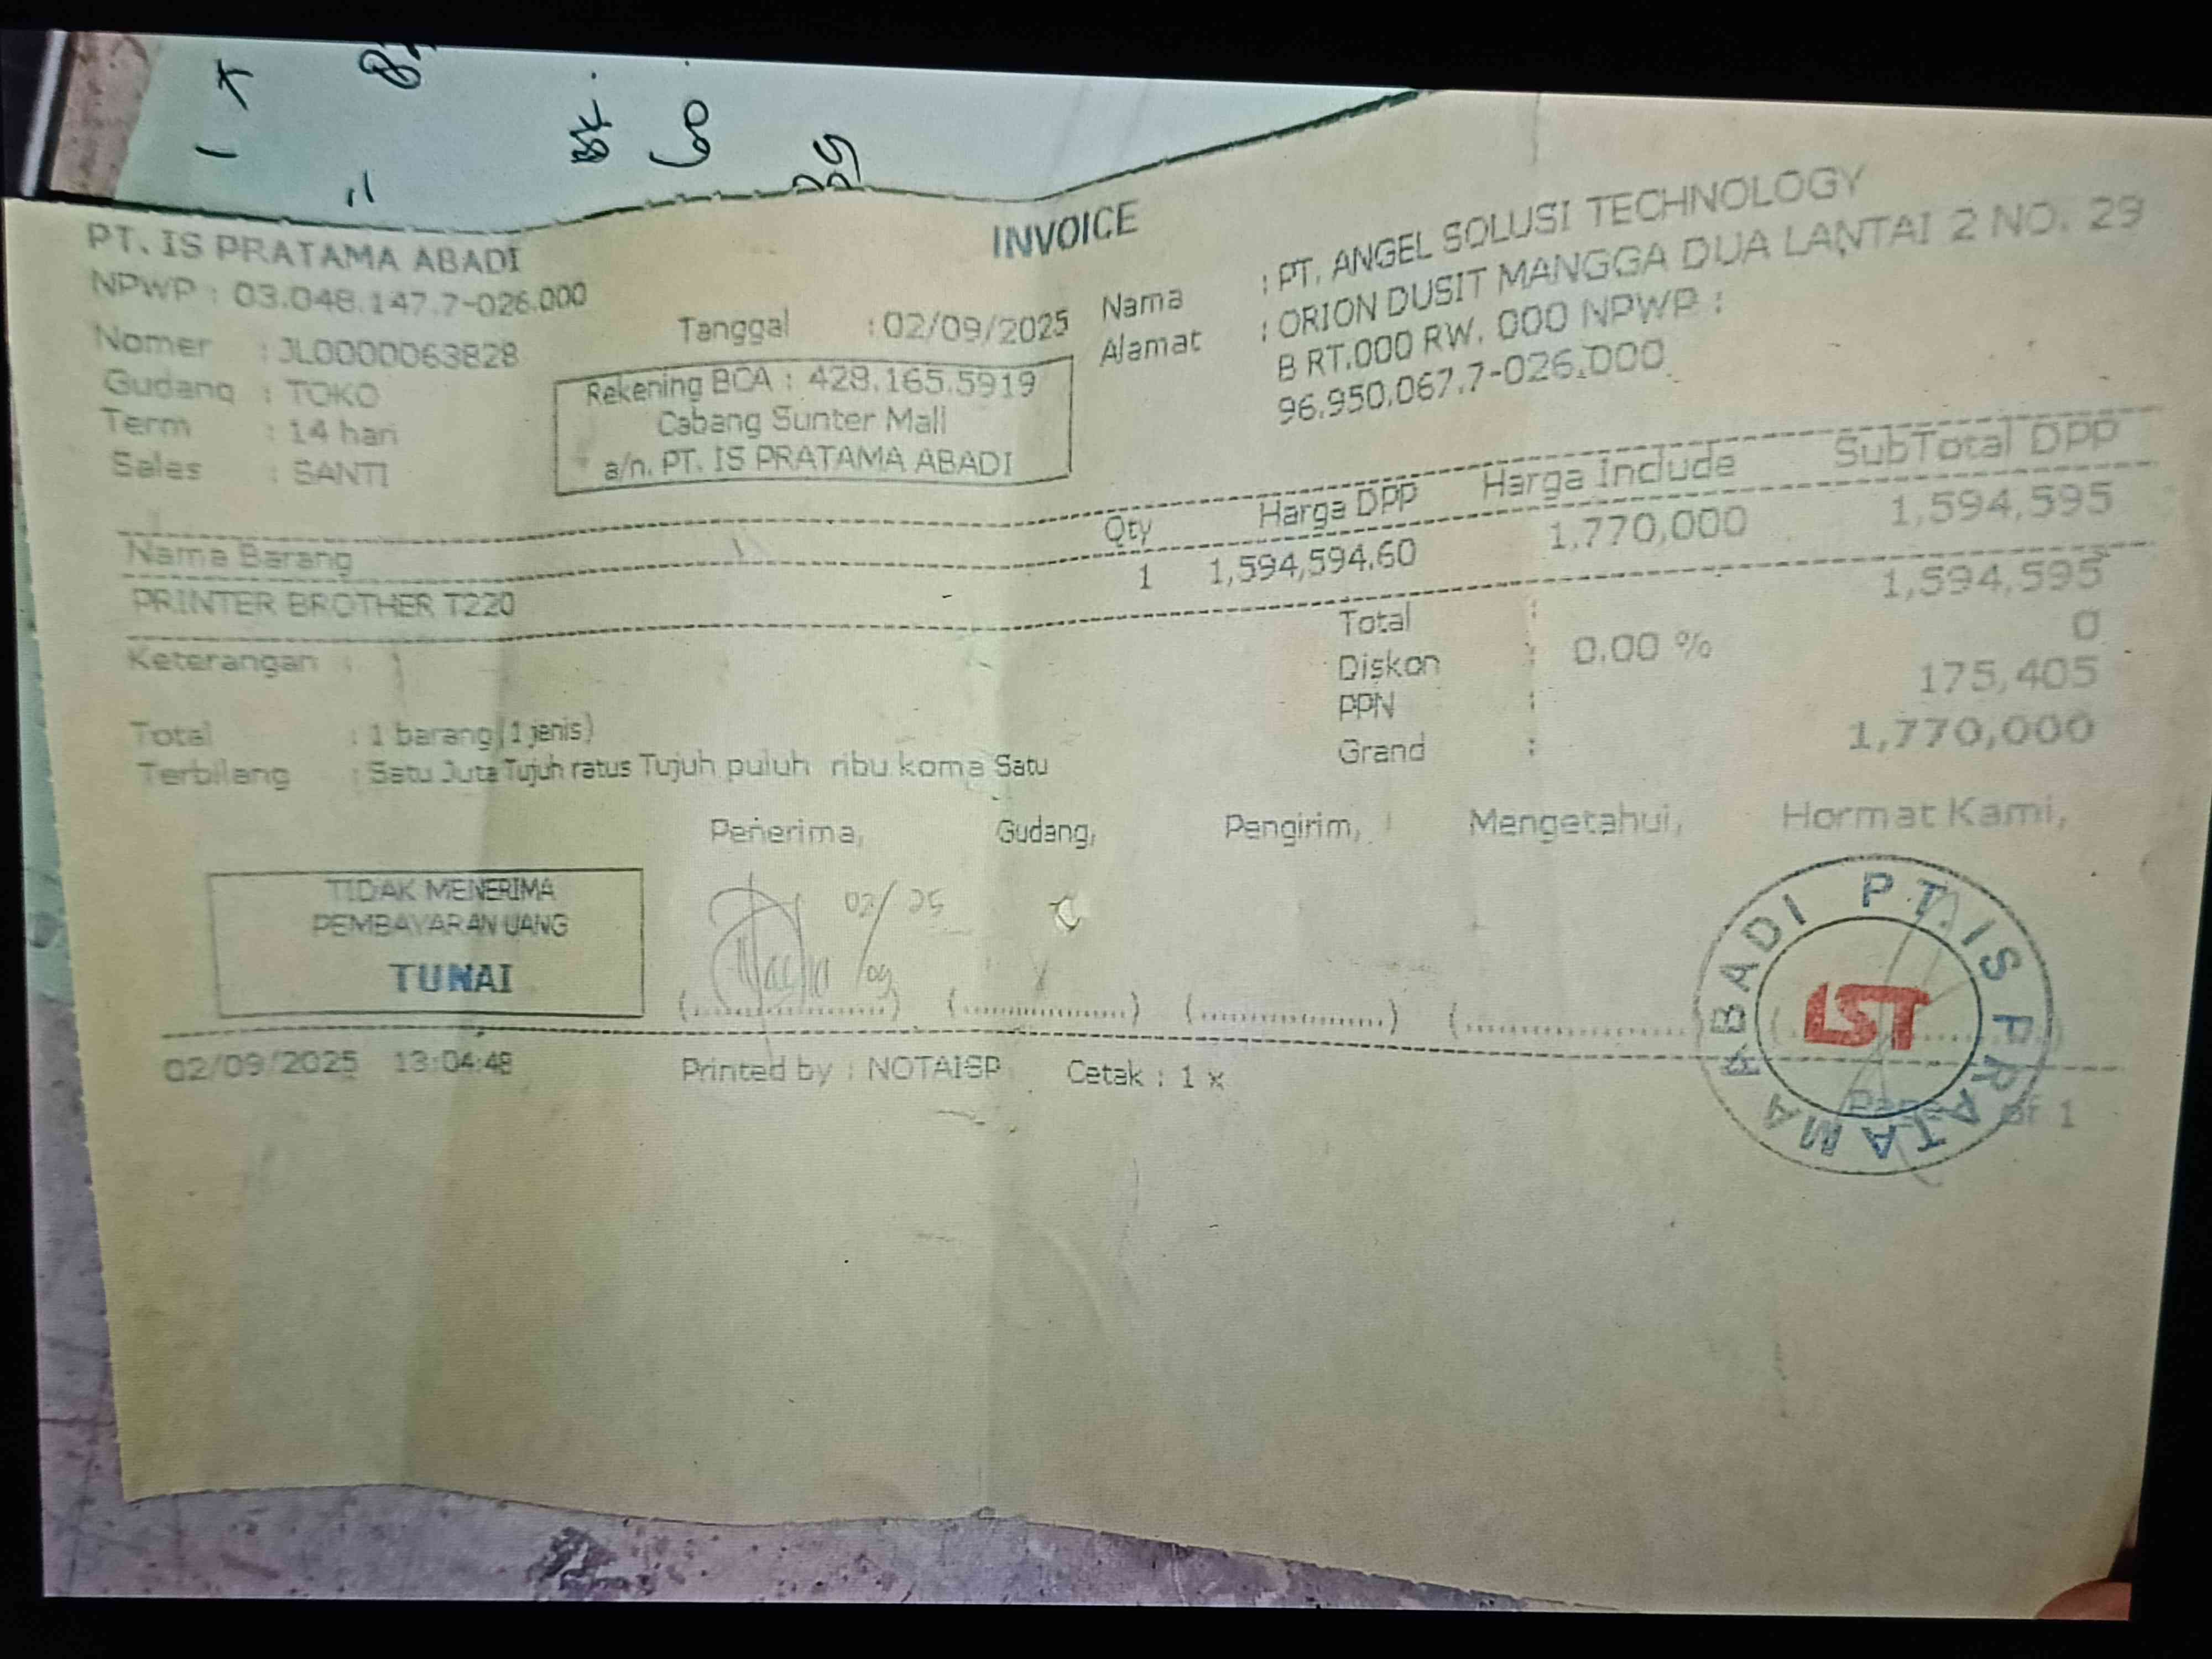 INVOICE
PT. IS PRATAMA ABADI
NPWP : 03.048.147.7-026.000
Nomer : JL0000063828
Gudang : TOKO
Term : 14 hari
Sales : SANTI
Tanggal : 02/09/2025
Rekening BCA : 428.165.5919
Cabang Sunter Mall
a/n. PT. IS PRATAMA ABADI
Nama : PT. ANGEL SOLUSI TECHNOLOGY
Alamat : ORION DUSIT MANGGA DUA LANTAI 2 NO. 29
B RT.000 RW. 000 NPWP :
96.950.067.7-026.000
Nama Barang Qty Harga DPP Harga Include SubTotal DPP
PRINTER BROTHER T220 1 1,594,594.60 1,770,000 1,594,595
Keterangan :
Total : 1,594,595
Diskon : 0.00 % 0
PPN : 175,405
Grand : 1,770,000
Total : 1 barang (1 jenis)
Terbilang : Satu Juta Tujuh ratus Tujuh puluh ribu koma Satu
Penerima, Gudang, Pengirim, Mengetahui, Hormat Kami,
TIDAK MENERIMA
PEMBAYARAN UANG
TUNAI
PT. IS PRATAMA ABADI
IST
02/09/2025 13:04:48 Printed by : NOTAISP Cetak : 1 x
of 1